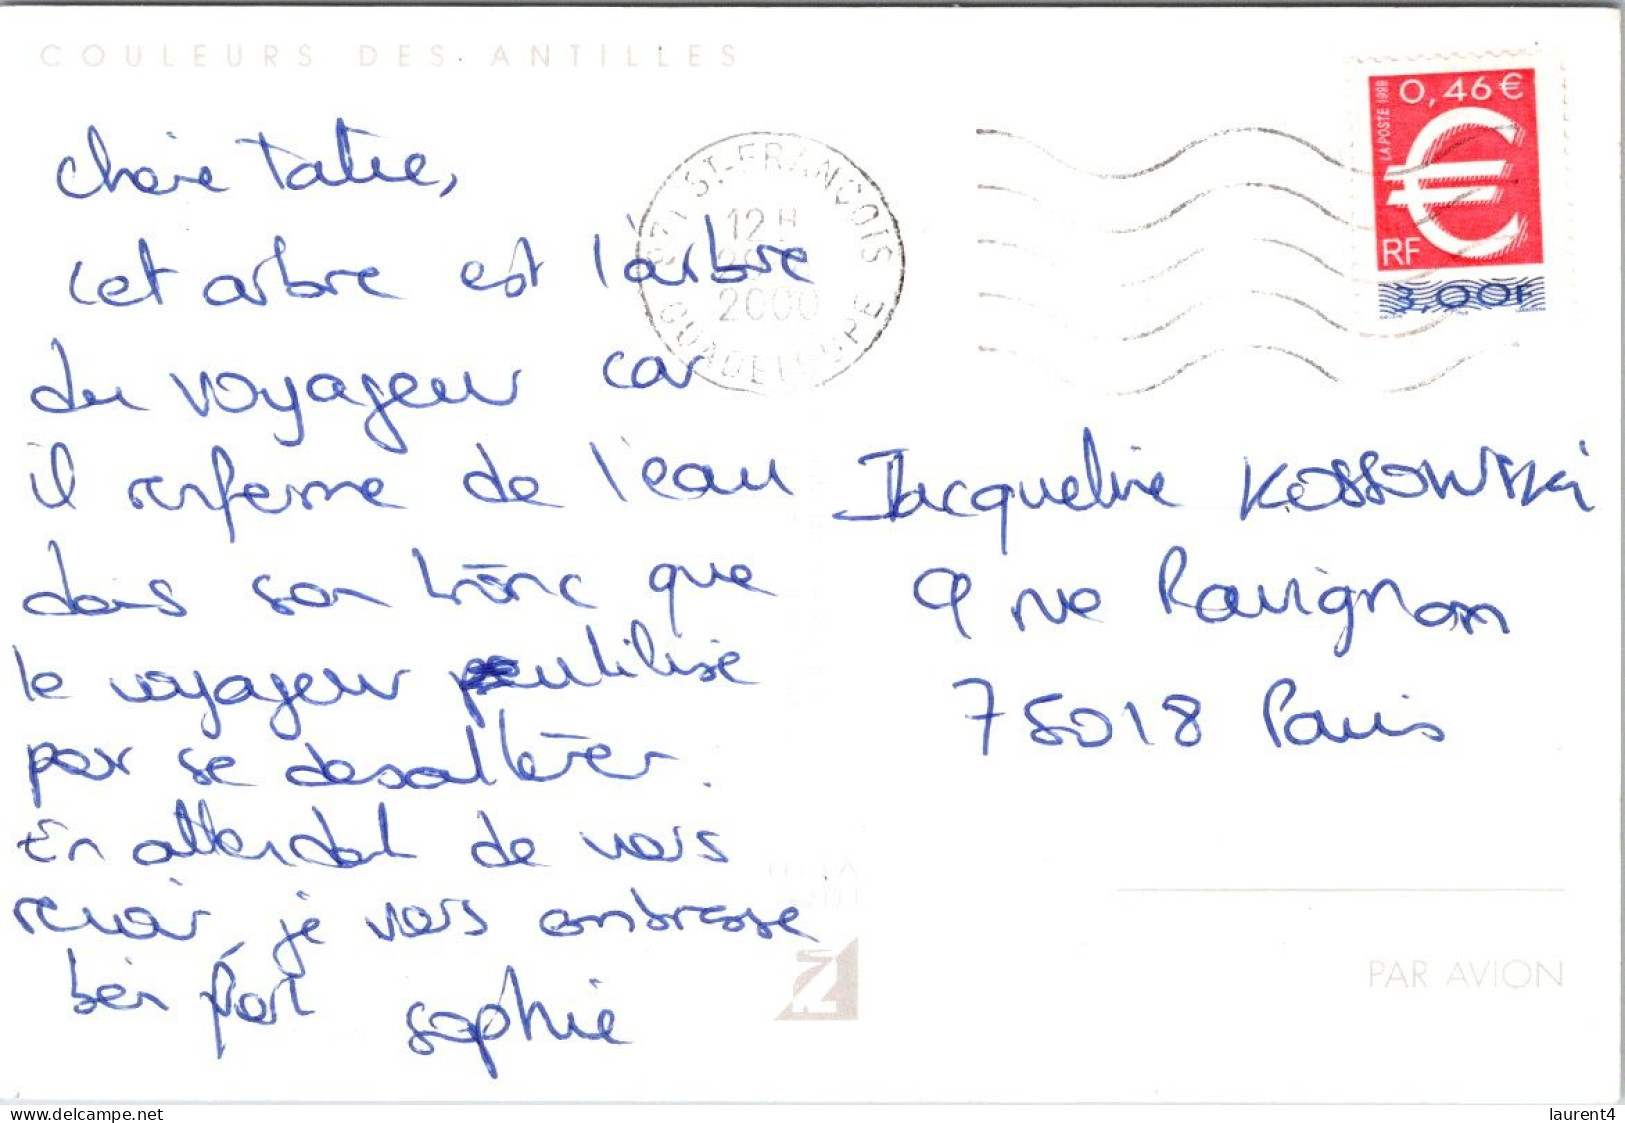 COULEURS DES ANTILLES
Chère Tatie,
cet arbre est l'arbre
du voyageur car
il renferme de l'eau
dans son trônc que
le voyageur utilise
par se desaltérer.
En attendant de vous
revoir, je vous embrasse
bien fort
Sophie
ST-FRANÇOIS
12 H
2000
GUADELOUPE
0,46 €
LA POSTE 1999
€
RF
3,00F
Jacqueline KOSSOWSKI
9 rue Ravignan
75018 Paris
PAR AVION
laurent4
www.delcampe.net